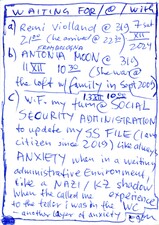 WAITING FOR / @ / WITH
a) Remi Violland @ 319 7 sat
21:15 (he arrived @ 22:15) XII
ROMANDINA 2024
b) ANTONIA MOON @ 319
11 XII 10:30 (she was @
the loft w/family in Sept 2009)
1 XII 10:00
c) W.F. my turn @ SOCIAL
SECURITY ADMINISTRATION
to update my SS FILE (I am
citizen since 2019) Like always
ANXIETY when in a waiting
administrative Environment,
like a NAZI/KZ shadow
When the called me experience
to the teller i was in the WC
– another layer of anxiety